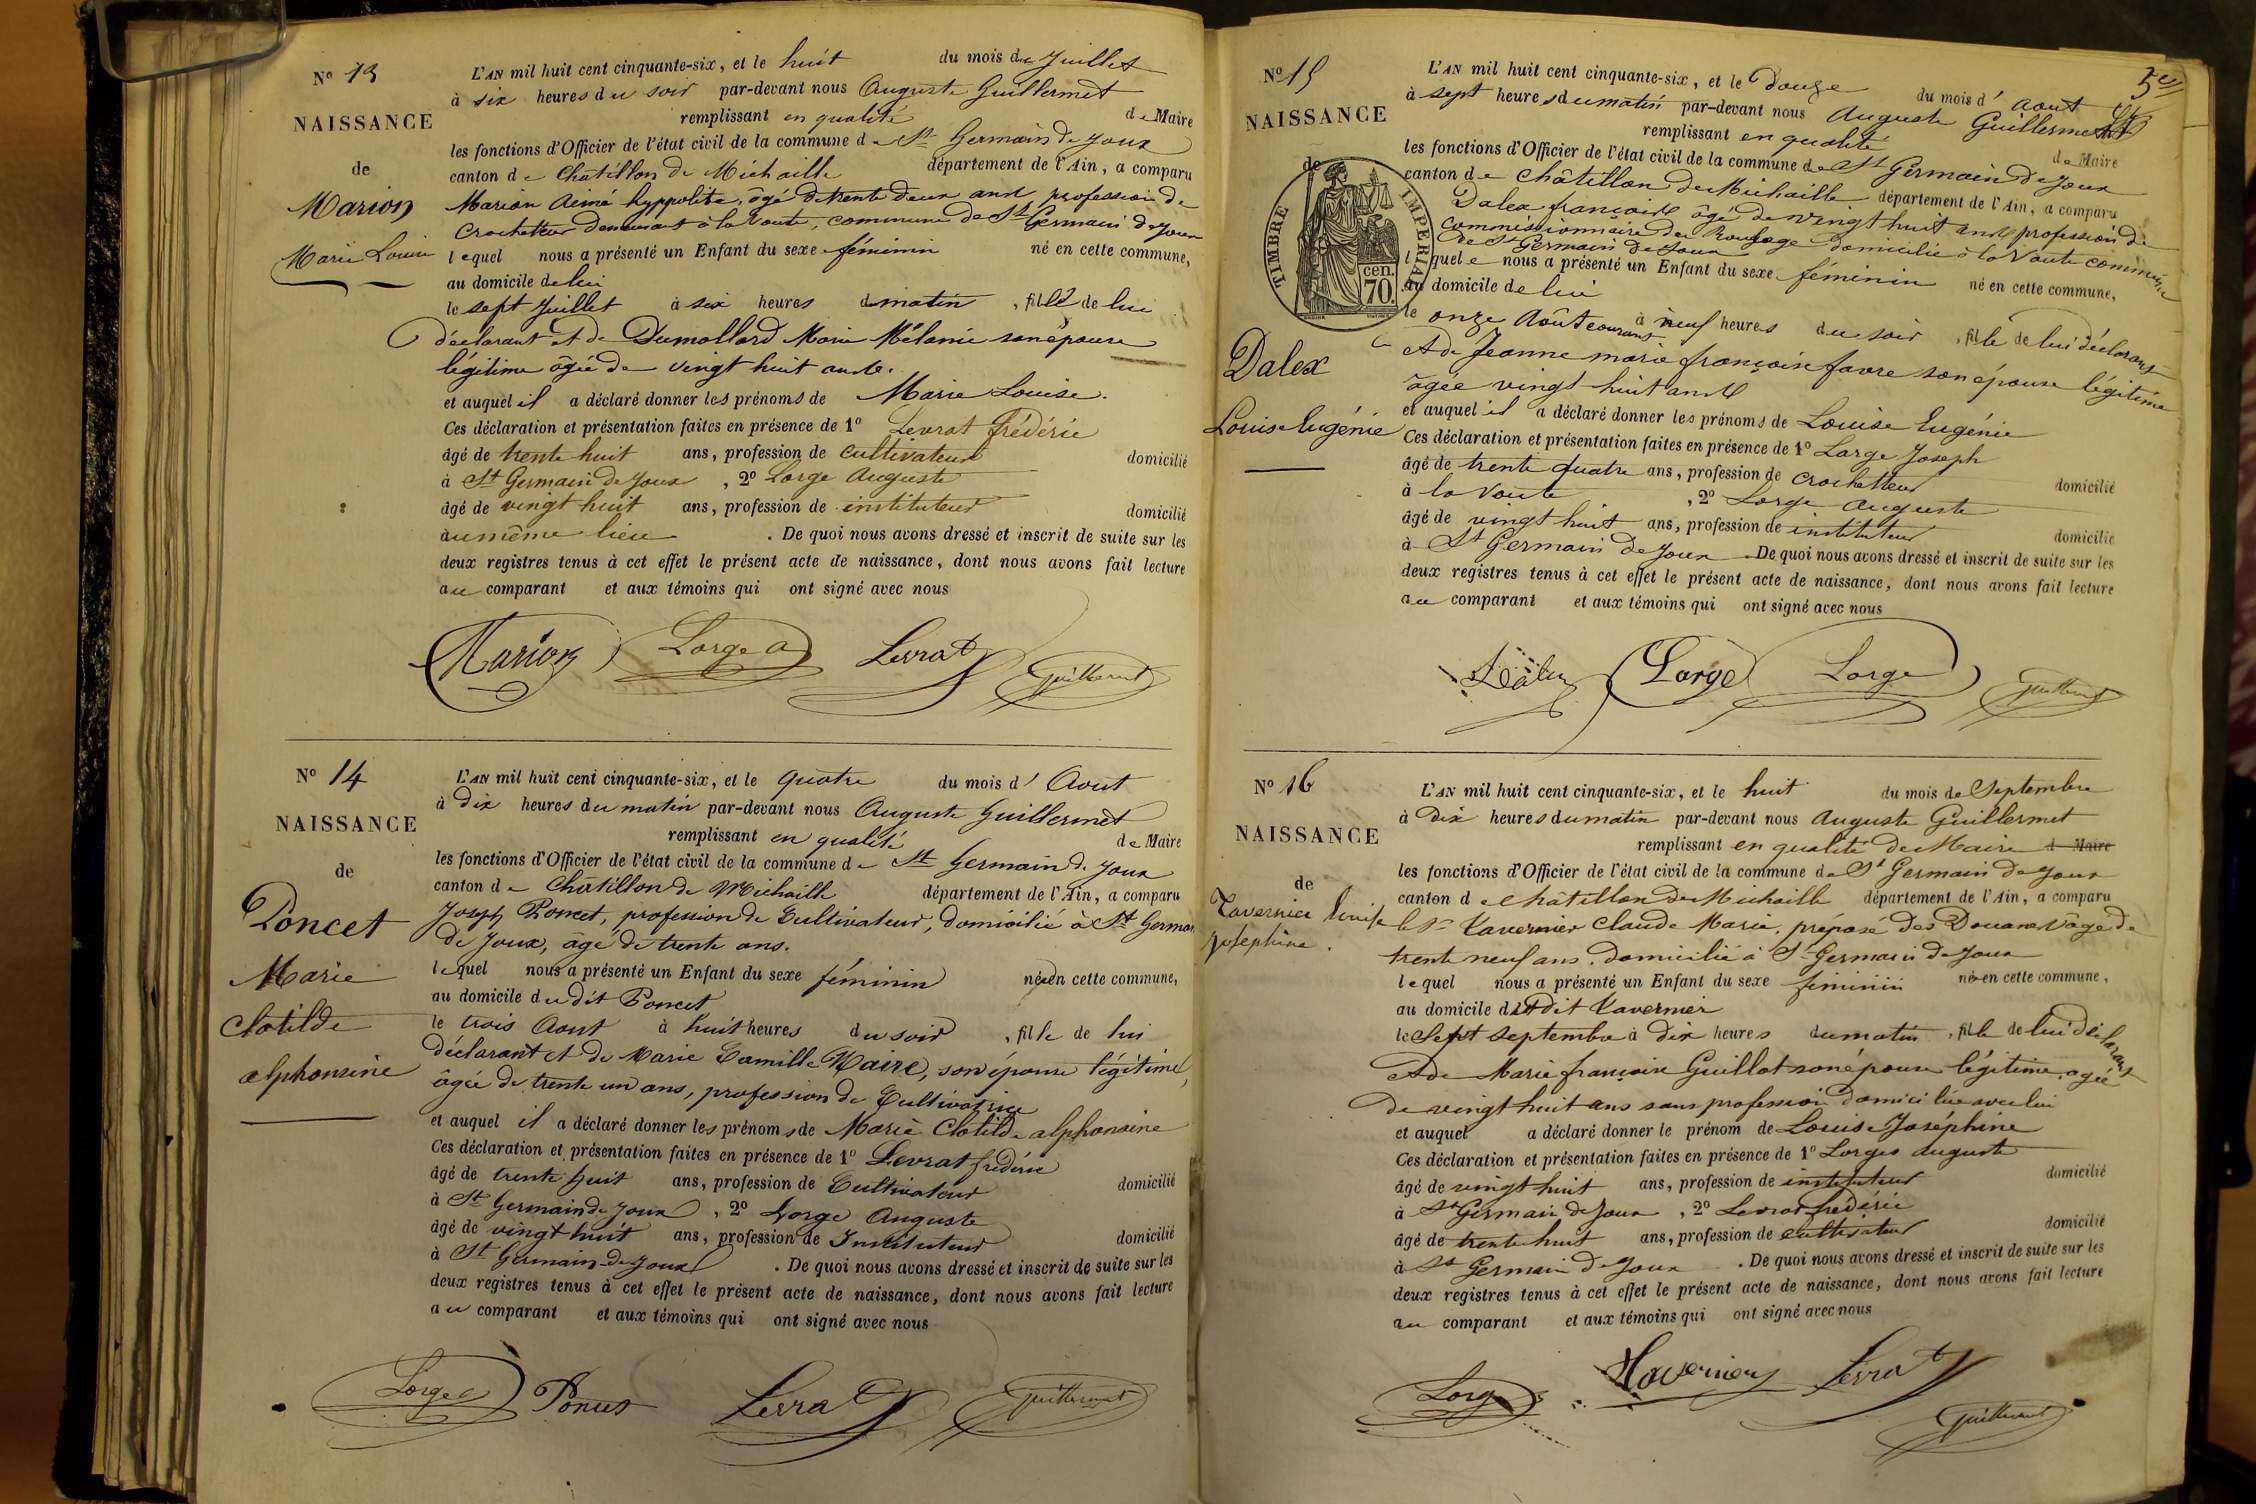 N° 13
NAISSANCE
de
Marion
Marie Louise
L'AN mil huit cent cinquante-six, et le huit du mois de Juillet
à six heures du soir par-devant nous Auguste Guillermet
remplissant en qualité de Maire
les fonctions d'Officier de l'état civil de la commune de St Germain de Joux
canton de Châtillon de Michaille département de l'Ain, a comparu
Marion Aimé hyppolite, âgé de trente deux ans, profession de
Crocheteur demeurant à la Voute, commune de St Germain de Joux
lequel nous a présenté un Enfant du sexe féminin né en cette commune,
au domicile de lui
le sept Juillet à six heures du matin, fille de lui
déclarant et de Dumollard Marie Mélanie son épouse
légitime âgée de vingt huit ans.
et auquel il a déclaré donner les prénoms de Marie Louise.
Ces déclaration et présentation faites en présence de 1° Levrat frédéric
âgé de trente huit ans, profession de cultivateur domicilié
à St Germain de Joux, 2° Lorge Auguste
âgé de vingt huit ans, profession de instituteur domicilié
au même lieu. De quoi nous avons dressé et inscrit de suite sur les
deux registres tenus à cet effet le présent acte de naissance, dont nous avons fait lecture
au comparant et aux témoins qui ont signé avec nous
Marion Lorge a Levrat Guillermet
N° 14
NAISSANCE
de
Poncet
Marie
Clotilde
alphonsine
L'AN mil huit cent cinquante-six, et le quatre du mois d'Aout
à dix heures du matin par-devant nous Auguste Guillermet
remplissant en qualité de Maire
les fonctions d'Officier de l'état civil de la commune de St Germain de Joux
canton de Châtillon de Michaille département de l'Ain, a comparu
Joseph Poncet, profession de Cultivateur, domicilié à St Germain
de Joux, âgé de trente ans.
lequel nous a présenté un Enfant du sexe féminin née en cette commune,
au domicile du dit Poncet
le trois Aout à huit heures du soir, fille de lui
déclarant et de Marie Camille Maire, son épouse légitime,
âgée de trente un ans, profession de Cultivatrice
et auquel il a déclaré donner les prénoms de Marie Clotilde alphonsine
Ces déclaration et présentation faites en présence de 1° Levrat frédéric
âgé de trente huit ans, profession de Cultivateur domicilié
à St Germain de Joux, 2° Lorge Auguste
âgé de vingt huit ans, profession de Instituteur domicilié
à St Germain de Joux. De quoi nous avons dressé et inscrit de suite sur les
deux registres tenus à cet effet le présent acte de naissance, dont nous avons fait lecture
au comparant et aux témoins qui ont signé avec nous
Lorge a Poncet Levrat Guillermet
N° 15
NAISSANCE
de
TIMBRE IMPERIAL
cen.
70.
Dalex
Louise Eugénie
L'AN mil huit cent cinquante-six, et le Douze du mois d'Aout
à sept heures du matin par-devant nous Auguste Guillermet
remplissant en qualité de Maire
les fonctions d'Officier de l'état civil de la commune de St Germain de Joux
canton de Châtillon de Michaille département de l'Ain, a comparu
Dalex françois âgé de vingt huit ans profession de
Commissionnaire de Roulage domicilié à la Voute commune
de St Germain de Joux
lequel nous a présenté un Enfant du sexe féminin né en cette commune,
au domicile de lui
le onze Août courant à neuf heures du soir, fille de lui déclarant
et de Jeanne marie françoise favre son épouse légitime
âgée vingt huit ans
et auquel il a déclaré donner les prénoms de Louise Eugénie
Ces déclaration et présentation faites en présence de 1° Lorge Joseph
âgé de trente quatre ans, profession de crocheteur domicilié
à la Voute, 2° Lorge Auguste
âgé de vingt huit ans, profession de instituteur domicilié
à St Germain de Joux. De quoi nous avons dressé et inscrit de suite sur les
deux registres tenus à cet effet le présent acte de naissance, dont nous avons fait lecture
au comparant et aux témoins qui ont signé avec nous
Lorge Lorge Guillermet
N° 16
NAISSANCE
de
Tavernier Louise
Josephine.
L'AN mil huit cent cinquante-six, et le huit du mois de Septembre
à Dix heures du matin par-devant nous Auguste Guillermet
remplissant en qualité de Maire d Maire
les fonctions d'Officier de l'état civil de la commune de St Germain de Joux
canton de Châtillon de Michaille département de l'Ain, a comparu
le Sr Tavernier Claude Marie, préposé des Douanes âgé de
trente neuf ans. domicilié à St Germain de Joux
lequel nous a présenté un Enfant du sexe féminin né en cette commune,
au domicile dudit Tavernier
le Sept septembre à dix heures du matin, fille de lui déclarant
et de Marie françoise Guillot son épouse légitime, agée
de vingt huit ans sans profession domiciliée avec lui
et auquel a déclaré donner le prénom de Louise Joséphine
Ces déclaration et présentation faites en présence de 1° Lorge Auguste
âgé de vingt huit ans, profession de instituteur domicilié
à St Germain de Joux, 2° Levrat frédéric
âgé de trente huit ans, profession de cultivateur domicilié
à St Germain de Joux. De quoi nous avons dressé et inscrit de suite sur les
deux registres tenus à cet effet le présent acte de naissance, dont nous avons fait lecture
au comparant et aux témoins qui ont signé avec nous
Lorge Tavernier Levrat Guillermet